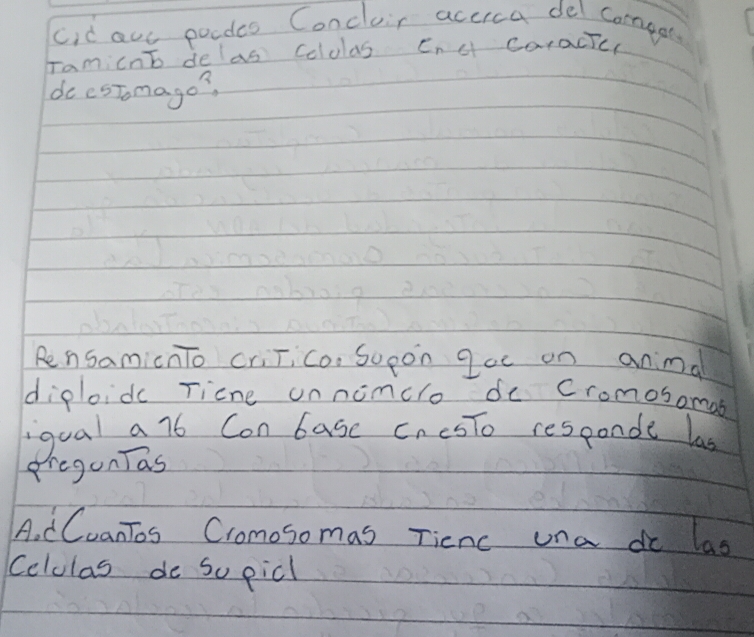 C,¿ que puedes Concluir acerca del Compor
Tamiento de las Celulas en el Caracter
de esTomago?
PensamienTo criTico. Supón que un animal
diploide Tiene un número de Cromosomas
igual a 76 Con base en esTo responde las
preguntas
A.¿CuanTos Cromosomas Tiene una de las
Celulas de Su piel